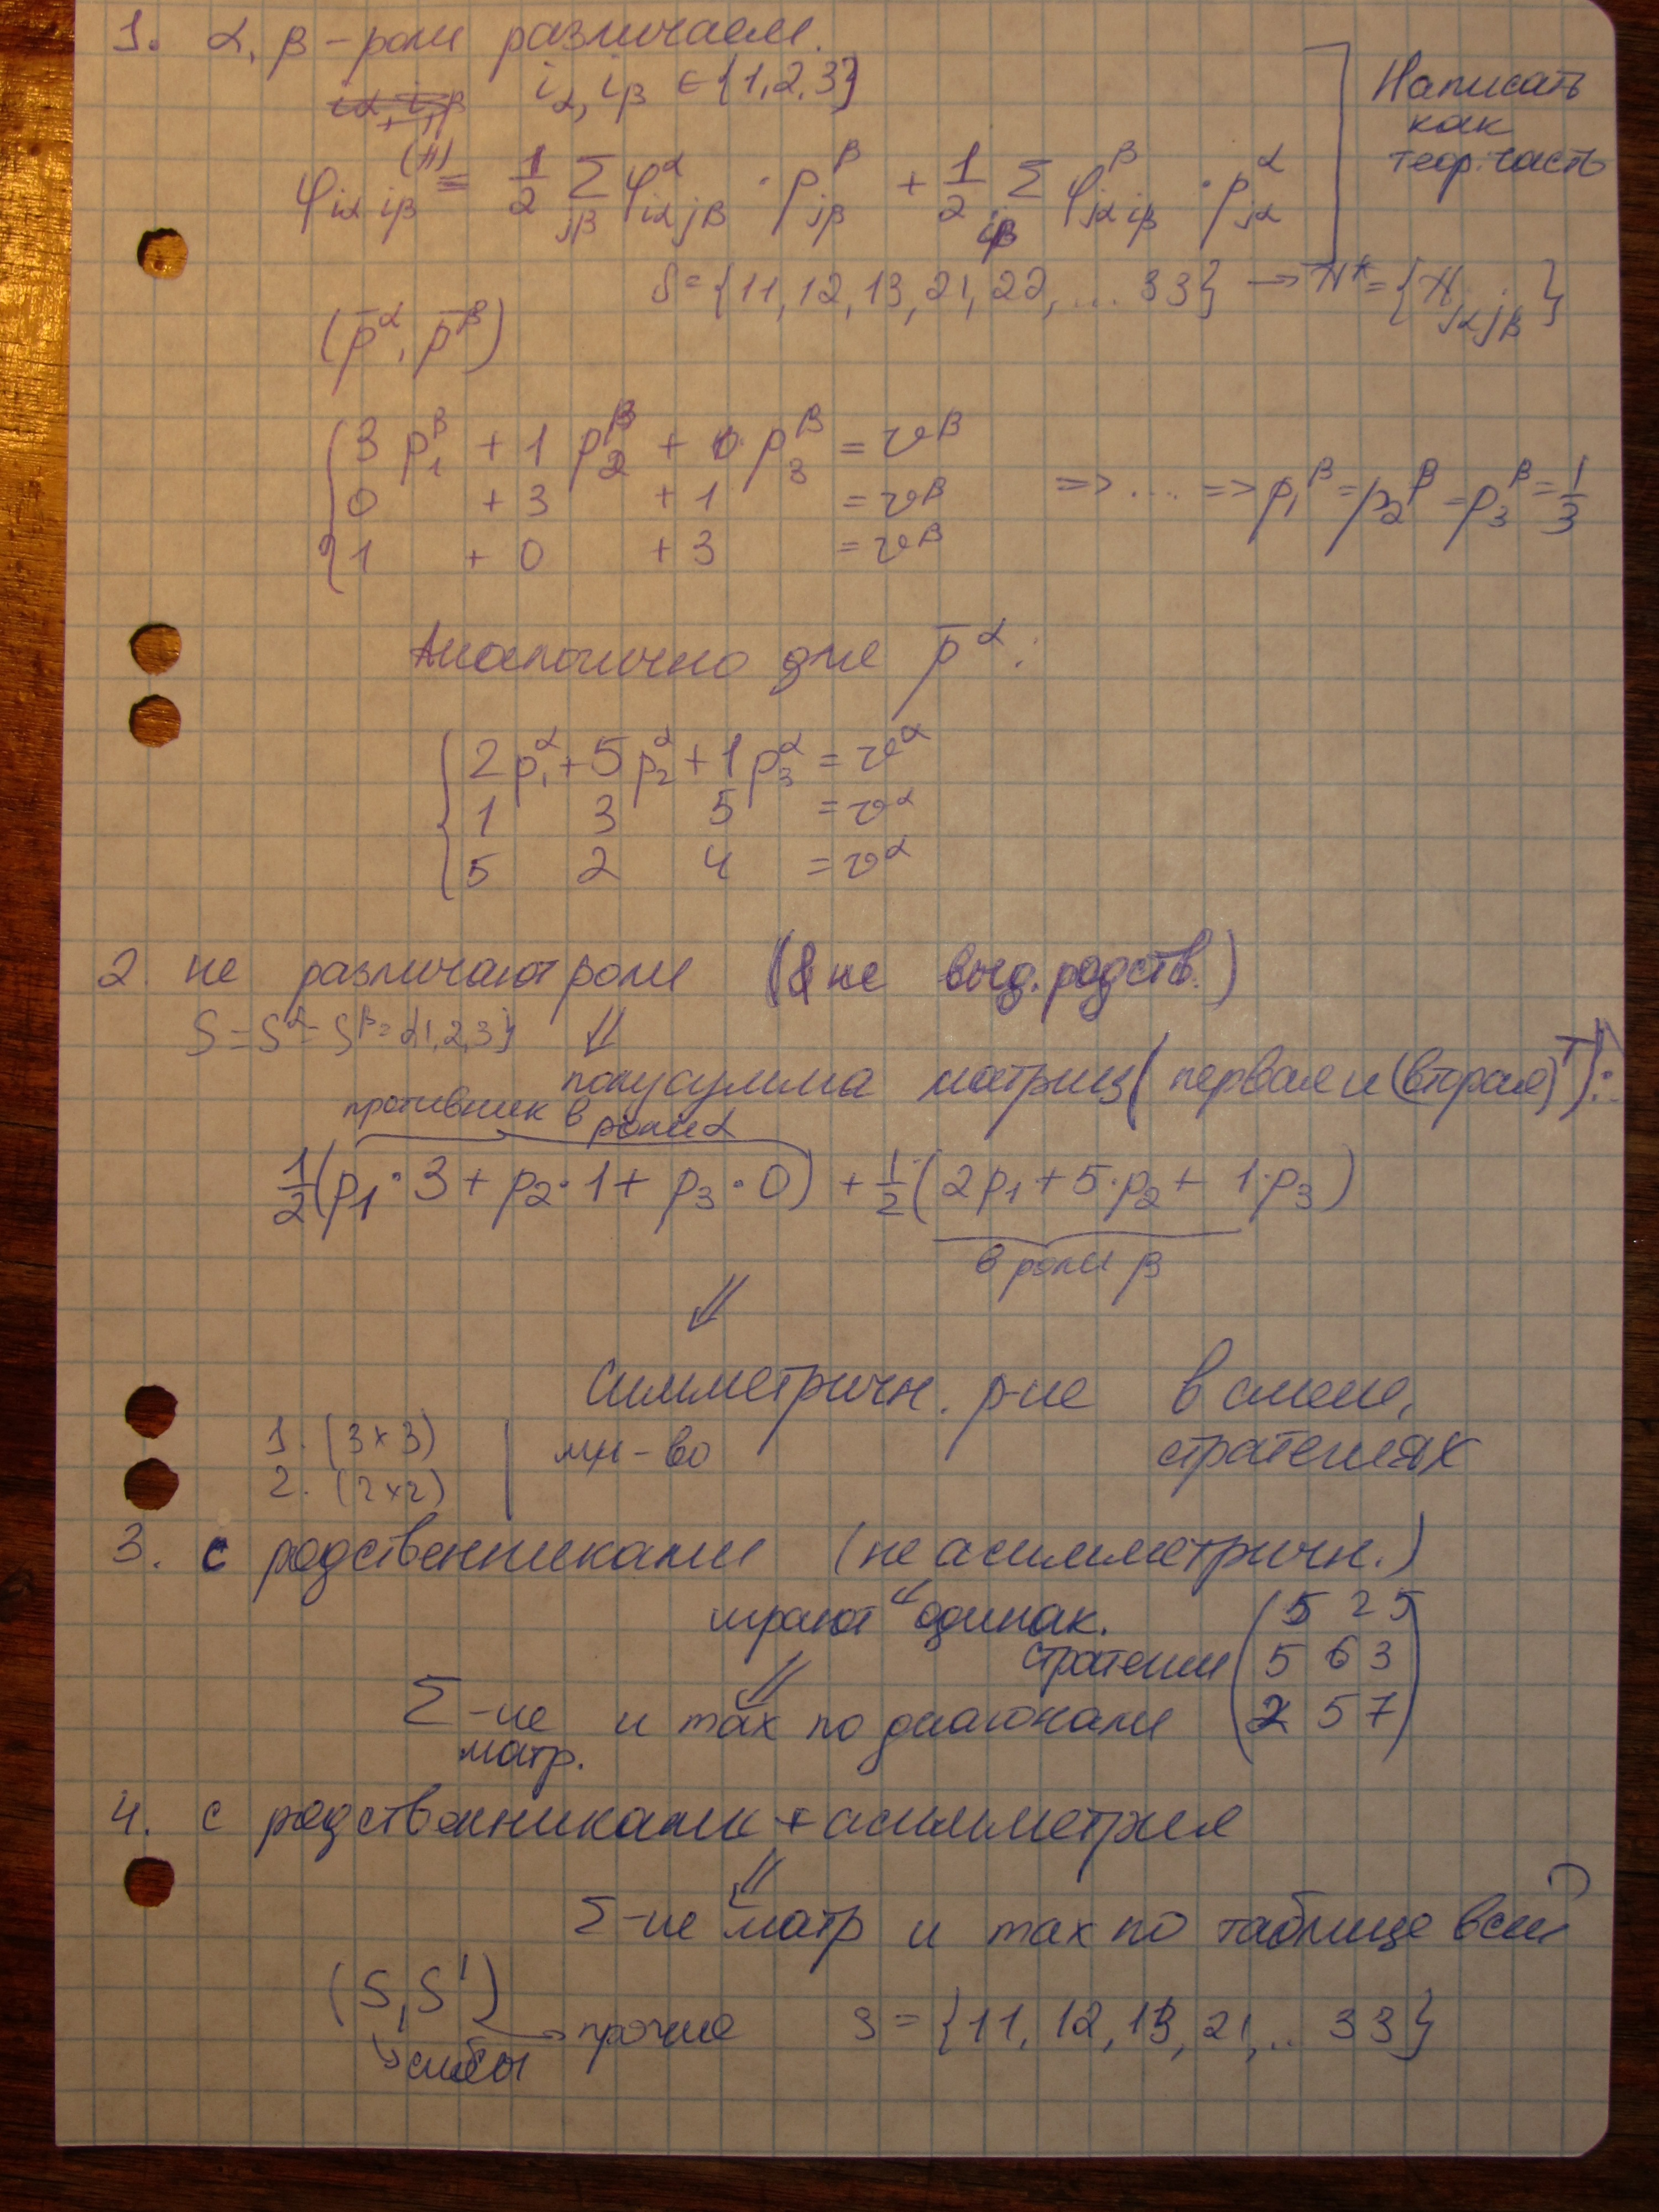 1. α, β – роли различаем.
i_α, i_β ∈ {1,2,3}
Написать
как
теор. часть
φ_{iα iβ}^{(H)} = 1/2 Σ_{jβ} φ^α_{iα jβ} · p^β_{jβ} + 1/2 Σ_{iβ} φ^β_{jα iβ} · p^α_{jα}
S = {11, 12, 13, 21, 22, ... 33} → H* = {H_{jα jβ}}
(p̄^α, p̄^β)
3 p₁^β + 1 p₂^β + 0· p₃^β = v^β
0 + 3 + 1 = v^β ⇒ .... ⇒ p₁^β = p₂^β = p₃^β = 1/3
1 + 0 + 3 = v^β
Аналогично для p̄^α:
2p₁^α + 5p₂^α + 1p₃^α = v^α
1 3 5 = v^α
5 2 4 = v^α
2. не различают роли (& не выд. родств.)
S = S^α = S^β = {1,2,3} ⇓
полусумма матриц (первая и (вторая)^T):
противник в роли α
1/2 (p₁·3 + p₂·1 + p₃·0) + 1/2 (2p₁ + 5·p₂ + 1·p₃)
в роли β
⇓
Симметричн. р-ие в смеш.
1. (3×3) мн-во стратегиях
2. (2×2)
3. с родственниками (не асимметричн.)
играют одинак. (5 2 5
стратегии 5 6 3
Σ-ие и max по диагонали 2 5 7)
матр.
4. с родственниками + асимметрия
⇓
Σ-ие матр и max по таблице всей
(S, S')
→ прочие S = {11, 12, 13, 21, .. 33}
↘ сибсы